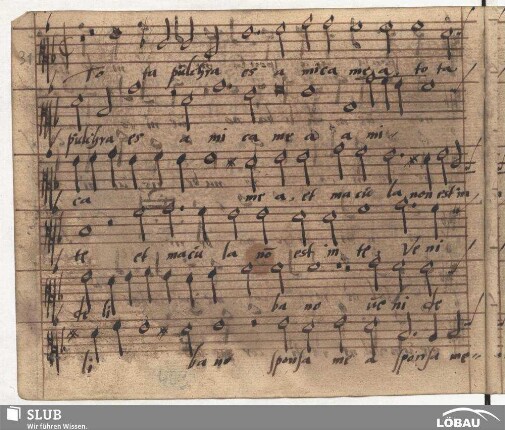 To ta pulchra es a mica me a, to ta
pulchra es a mi ca me a a mi
ca me a, et macu la non est in
te et macu la nõ est in te Ve ni
de li ba no ve ni de
li ba no sponsa me a sponsa me
SLUB
Wir führen Wissen.
LÖBAU